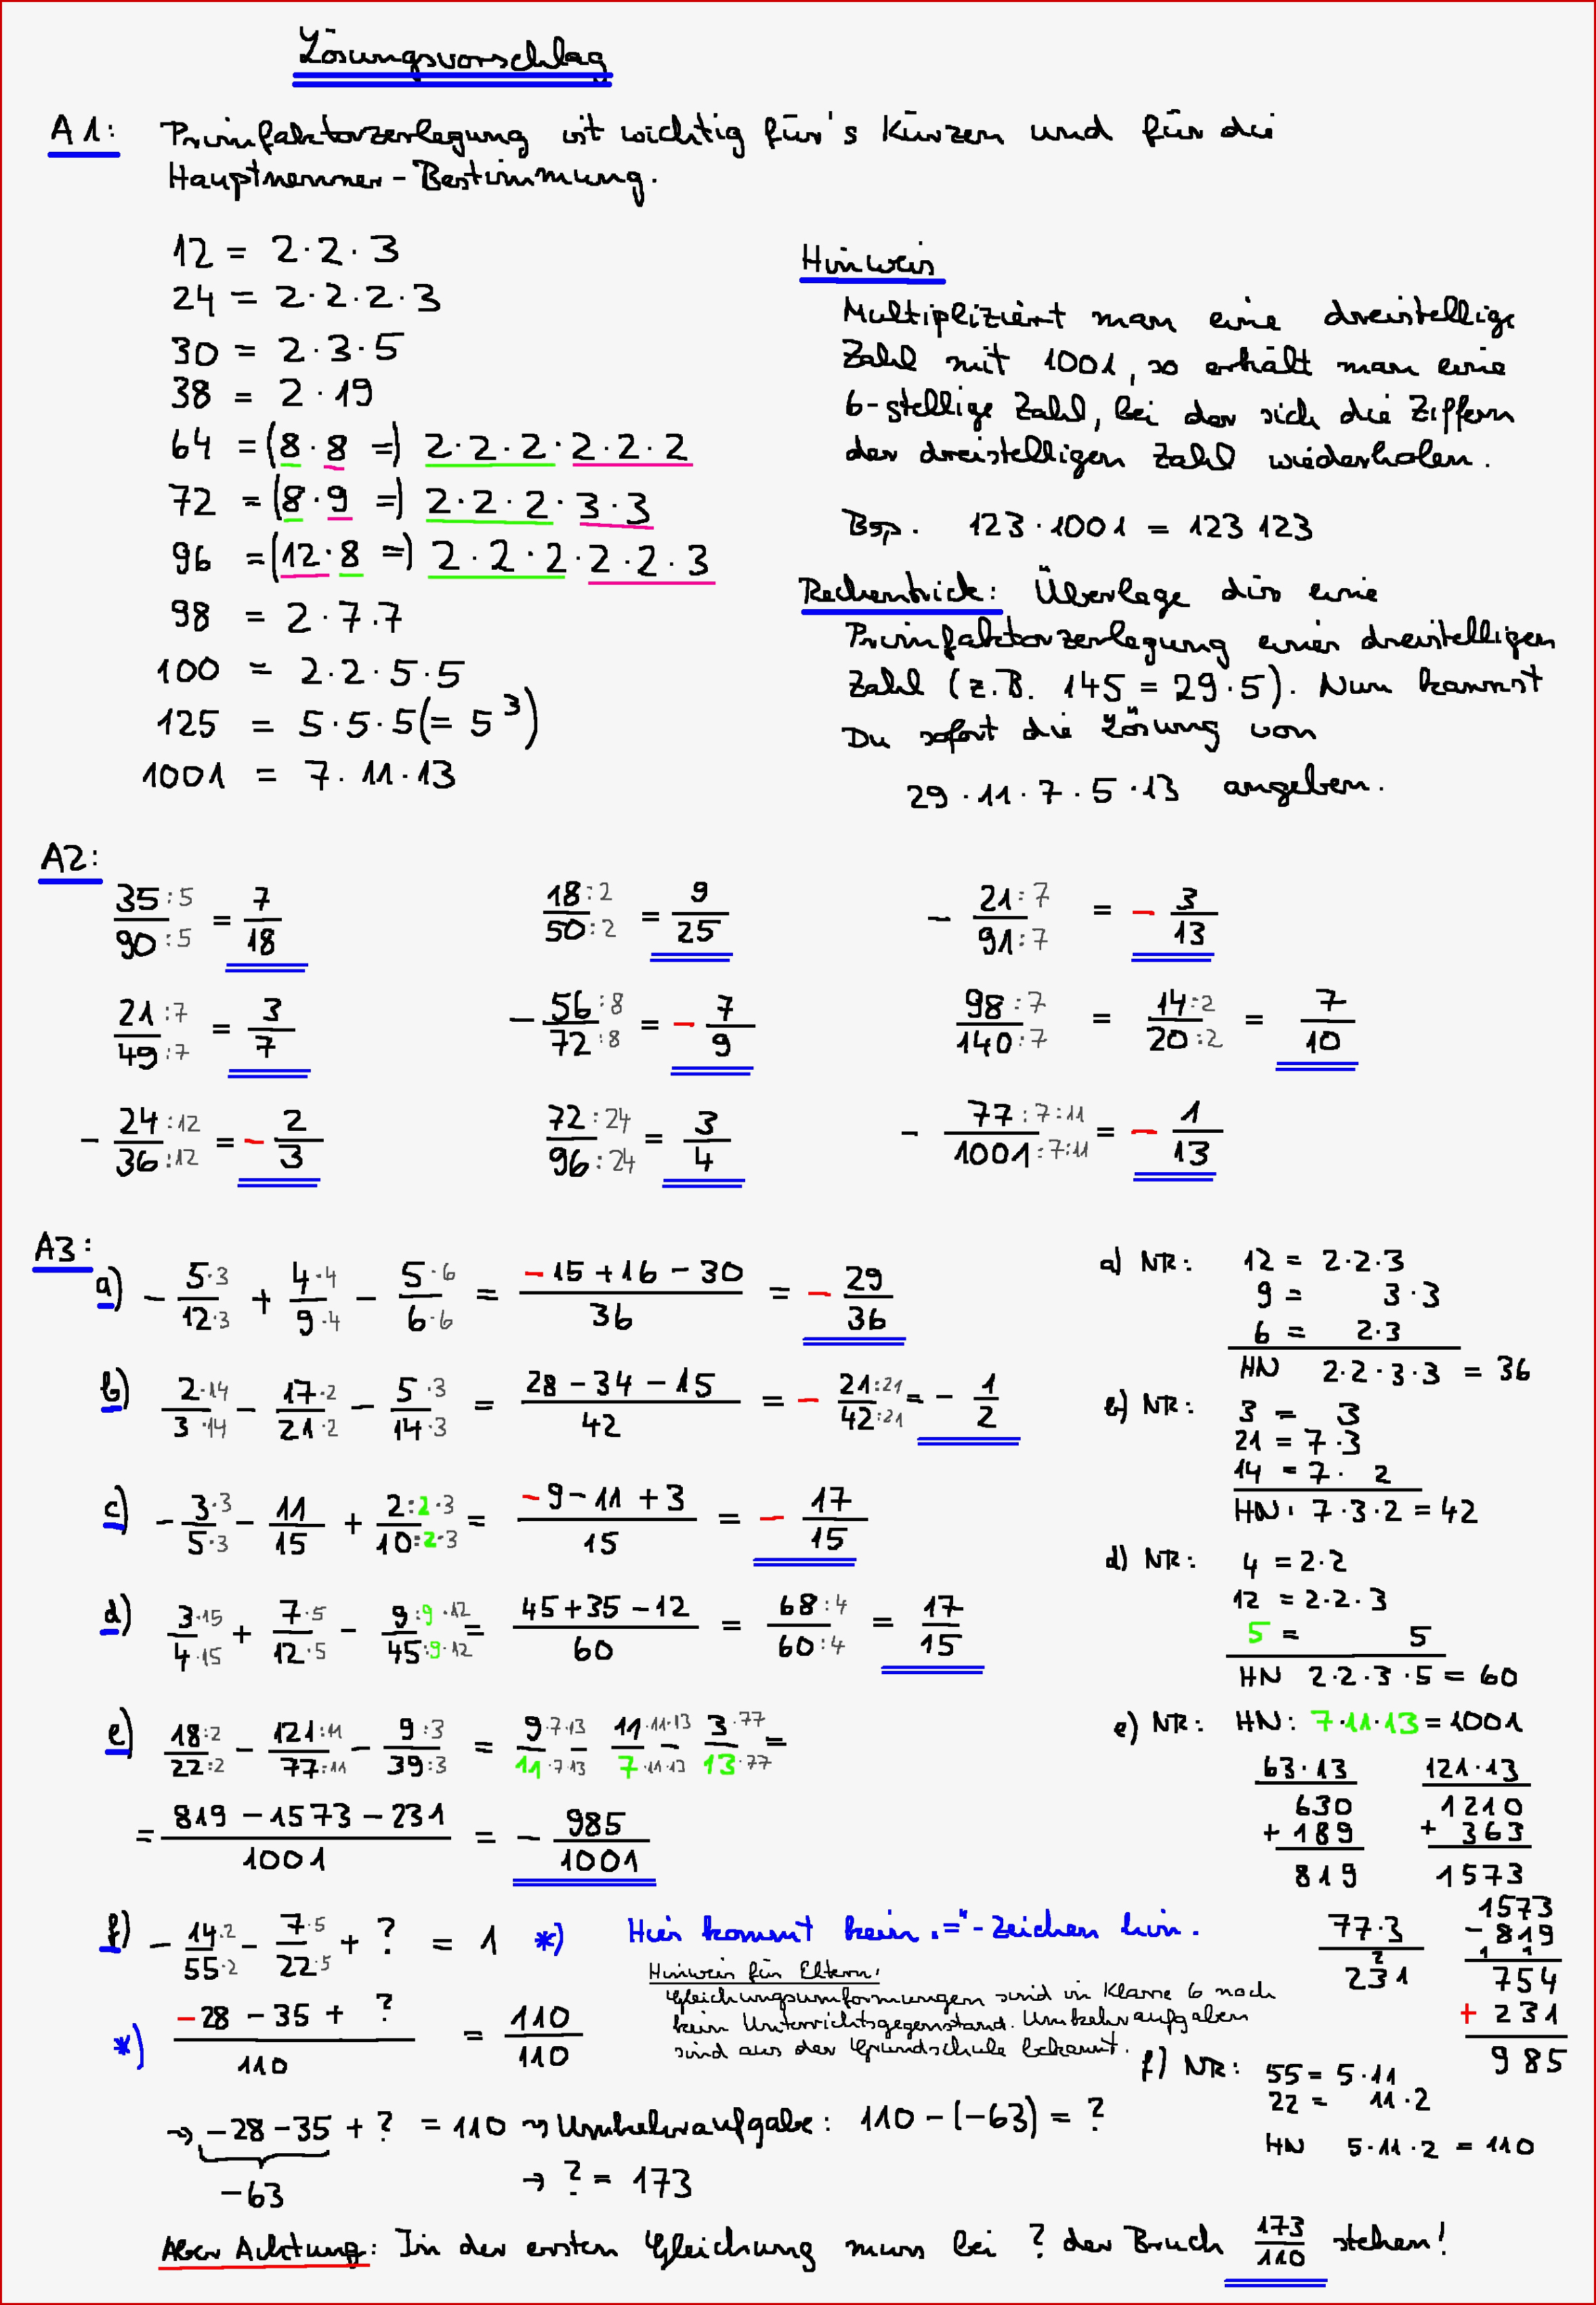 Lösungsvorschlag
A1: Primfaktorzerlegung ist wichtig für's Kürzen und für die
Hauptnenner-Bestimmung.
12 = 2·2·3
24 = 2·2·2·3
30 = 2·3·5
38 = 2·19
64 = (8·8 =) 2·2·2·2·2·2
72 = (8·9 =) 2·2·2·3·3
96 = (12·8 =) 2·2·2·2·2·3
98 = 2·7·7
100 = 2·2·5·5
125 = 5·5·5 (= 5³)
1001 = 7·11·13
Hinweis
Multipliziert man eine dreistellige
Zahl mit 1001, so erhält man eine
6-stellige Zahl, bei der sich die Ziffern
der dreistelligen Zahl wiederholen.
Bsp. 123·1001 = 123 123
Rechentrick: Überlege dir eine
Primfaktorzerlegung einer dreistelligen
Zahl (z.B. 145 = 29·5). Nun kannst
Du sofort die Lösung von
29·11·7·5·13 angeben.
A2:
35:5/90:5 = 7/18   18:2/50:2 = 9/25   - 21:7/91:7 = - 3/13
21:7/49:7 = 3/7   - 56:8/72:8 = - 7/9   98:7/140:7 = 14:2/20:2 = 7/10
- 24:12/36:12 = - 2/3   72:24/96:24 = 3/4   - 77:7:11/1001:7:11 = - 1/13
A3:
a) - 5·3/12·3 + 4·4/9·4 - 5·6/6·6 = (-15+16-30)/36 = - 29/36
b) 2·14/3·14 - 17·2/21·2 - 5·3/14·3 = (28-34-15)/42 = - 21:21/42:21 = - 1/2
c) - 3·3/5·3 - 11/15 + 2:2·3/10:2·3 = (-9-11+3)/15 = - 17/15
d) 3·15/4·15 + 7·5/12·5 - 9:9·12/45:9·12 = (45+35-12)/60 = 68:4/60:4 = 17/15
e) 18:2/22:2 - 121:11/77:11 - 9:3/39:3 = 9·7·13/11·7·13 - 11·11·13/7·11·13 - 3·77/13·77 =
= (819-1573-231)/1001 = - 985/1001
f) - 14·2/55·2 - 7·5/22·5 + ? = 1 *) Hier kommt kein "="-Zeichen hin.
Hinweis für Eltern:
Gleichungsumformungen sind in Klasse 6 noch
kein Unterrichtsgegenstand. Umkehraufgaben
sind aus der Grundschule bekannt.
*) (-28-35+ ?)/110 = 110/110
→ -28-35 + ? = 110 → Umkehraufgabe: 110-(-63) = ?
-63
→ ? = 173
Aber Achtung: In der ersten Gleichung muss bei ? der Bruch 173/110 stehen!
a) NR: 12 = 2·2·3
9 = 3·3
6 = 2·3
HN 2·2·3·3 = 36
b) NR: 3 = 3
21 = 7·3
14 = 7· 2
HN: 7·3·2 = 42
d) NR: 4 = 2·2
12 = 2·2·3
5 = 5
HN 2·2·3·5 = 60
e) NR: HN: 7·11·13 = 1001
63·13
630
+ 189
819
121·13
1210
+ 363
1573
77·3
2
231
1573
- 819
1 1
754
+ 231
985
f) NR: 55 = 5·11
22 = 11·2
HN 5·11·2 = 110